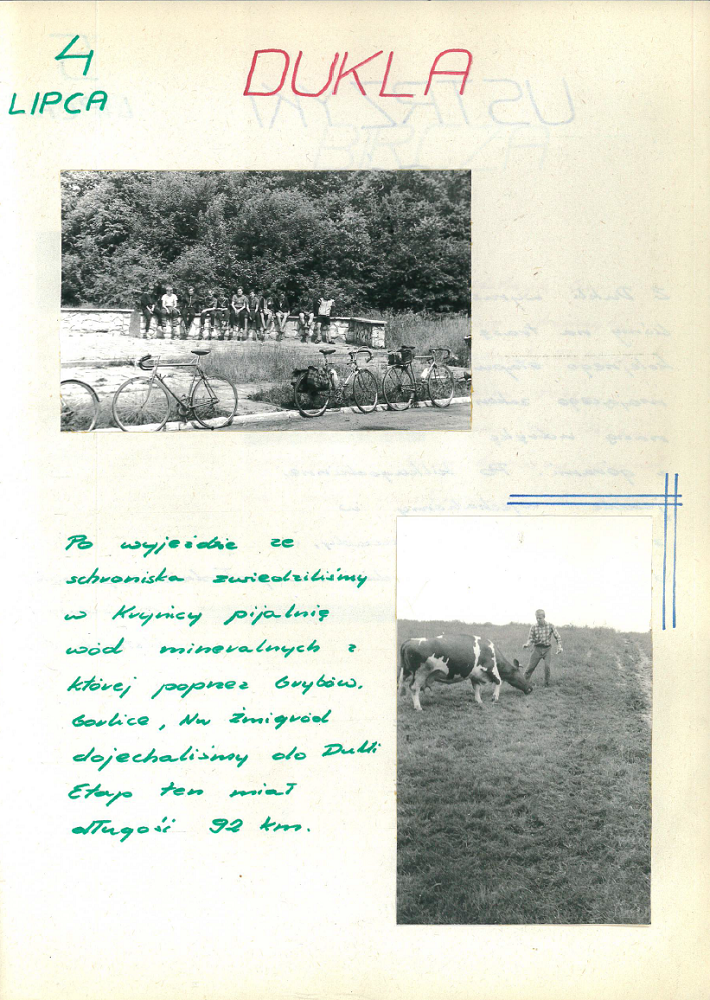 4
LIPCA
DUKLA
Po wyjeździe ze
schroniska zwiedziliśmy
w Krynicy pijalnię
wód mineralnych z
której poprzez Grybów,
Gorlice, Nw Żmigród
dojechaliśmy do Dukli
Etap ten miał
długość 92 km.